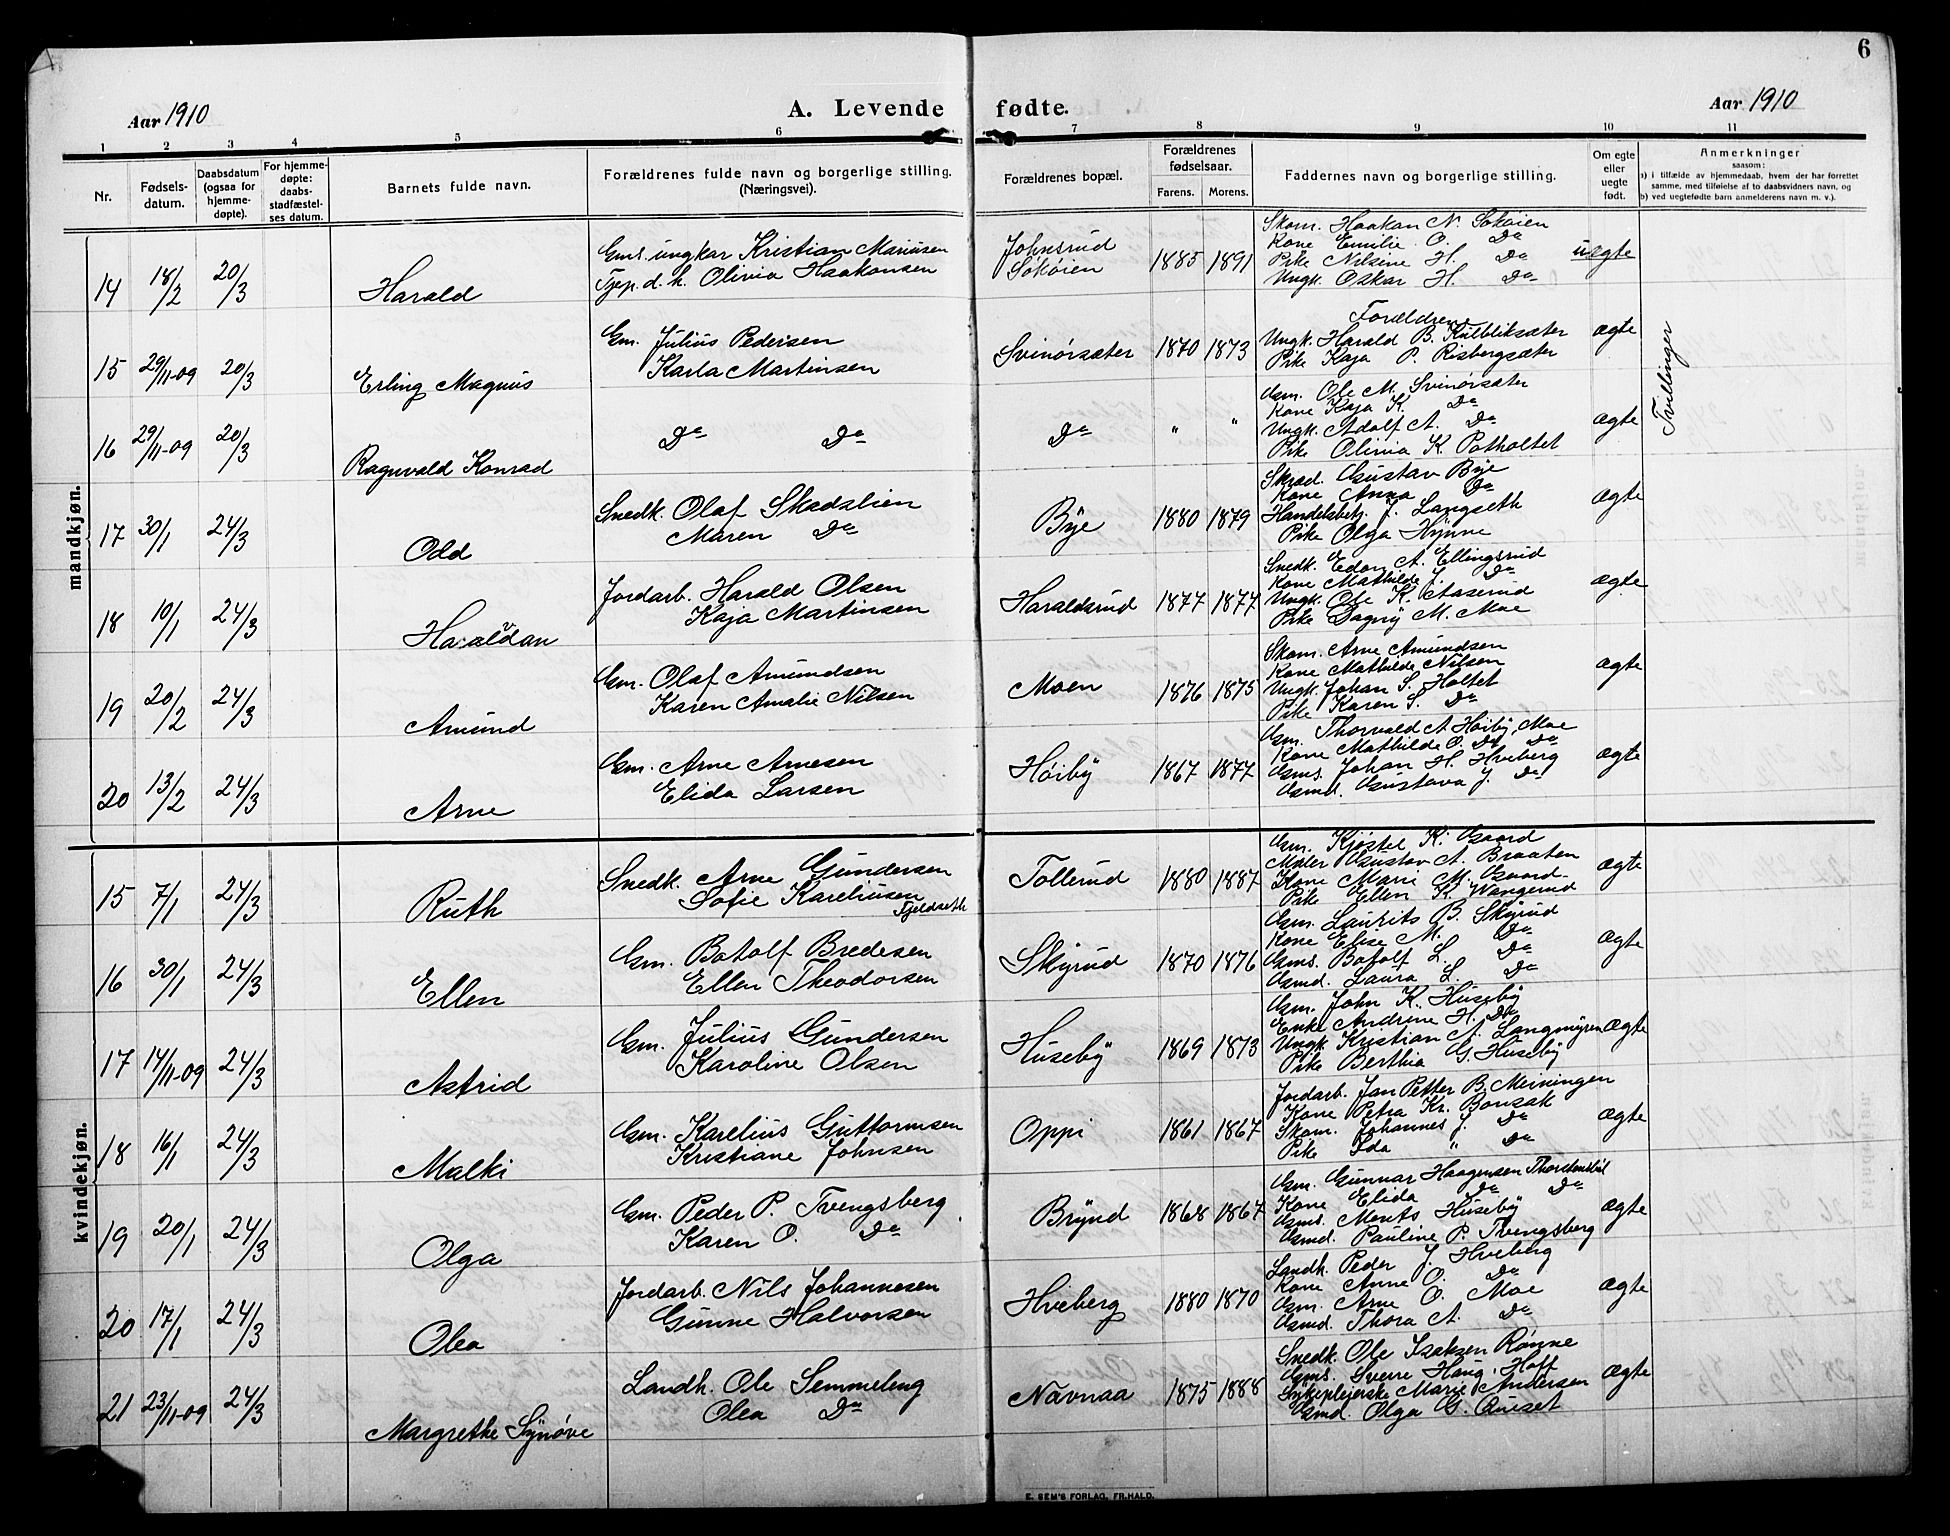 6
Aar 1910
A. Levende fødte.
Aar 1910
1 2 3 4 5 6 7 8 9 10 11
Nr.
Fødsels-
datum.
Daabsdatum
(ogsaa for
hjemme-
døpte).
For hjemme-
døpte:
daabs-
stadfæstel-
ses datum.
Barnets fulde navn.
Forældrenes fulde navn og borgerlige stilling.
(Næringsvei).
Forældrenes bopæl.
Forældrenes
fødselsaar.
Farens. Morens.
Faddernes navn og borgerlige stilling.
Om egte
eller
uegte
født.
Anmerkninger
saasom:
a) i tilfælde av hjemmedaab, hvem der har forrettet
samme, med tilføielse af to daabsvidners navn, og
b) ved uegtefødte barn anmelderens navn m. v.).
mandkjøn.
14 18/2 20/3 Harald
Gms. ungkar Kristian Mariusen
Tjep. d. k. Olivia Haakonsen
Johnsrud
Sokøien
1885 1891
Skom. Haakan N. Sokøien
Kone Emilie O. Do
Pike Nilsine H. Do
Ungk. Oskar H. Do
uægte
15 29/11-09 20/3 Erling Magnus
Gm. Julius Pedersen
Karla Martinsen
Svinørsæter 1870 1873
Forældrene
Ungk. Harald B. Kulbliksæter
Pike Kaja P. Risbergsæter
ægte
Tvillinger
16 29/11-09 20/3 Ragnvald Konrad
Do Do
Do " "
Gm. Ole M. Svinørsæter
Kone Kaja K. Do
Ungk. Adolf A. Do
Pike Olivia K. Potholtet
ægte
17 30/1 24/3 Odd
Snedk. Olaf Skadslien
Maren Do
Bye 1880 1879
Skræd. Gustav Bye
Kone Anna Do
Handelsbetj. J. Langseth
Pike Olga Hynne
ægte
18 10/1 24/3
Jordarb. Harald Olsen
Kaja Martinsen
Haraldsrud 1877 1877
Snedk. Edon A. Ellingsrud
Kone Mathilde J. Do
Ungk. Ole K. Aaserud
Pike Dagny M. Moe
ægte
19 20/2 24/3 Amund
Gm. Olaf Amundsen
Karen Amalie Nilsen
Moen 1876 1875
Skom. Arne Amundsen
Kone Mathilde Nilsen
Ungk. Johan S. Holtet
Pike Karen S. Do
ægte
20 13/2 24/3 Arne
Gm. Arne Arnesen
Elida Larsen
Høiby 1867 1877
Gm. Thorvald A Høiby, Moe
Kone Mathilde O. Do Do
Gms. Johan H. Hveberg
Gmd. Gustava J. Do
ægte
kvindekjøn.
15 7/1 24/3 Ruth
Snedk. Arne Gundersen
Sofie Kareliusen
Fjeldseth
Tollerud 1880 1887
Gm. Kjøstel K. Gaard
Maler Gustav A. Braaten
Kone Marie M. Gaard
Pike Ellen K. Wangerud
ægte
16 30/1 24/3 Ellen
Gm. Botolf Bredesen
Ellen Theodorsen
Skyrud 1870 1876
Gm. Laurits B. Skyrud
Kone Elise M. Do
Gms. Botolf L. Do
Gmd. Laura L. Do
ægte
17 14/11-09 24/3 Astrid
Gm. Julius Gundersen
Karoline Olsen
Huseby 1869 1873
Gm. John K. Huseby
Enke Andrine H. Do
Ungk. Kristian A. Langmyren
Pike Berthia G. Huseby
ægte
18 16/1 24/3 Malki
Gm. Karelius Guttormsen
Kristiane Johnsen
Oppi 1861 1867
Jordarb. Jan Petter B. Meiningen
Kone Petra Kr. Bonsak
Skom. Johannes J. Do
Pike Ida " Do
ægte
19 20/1 24/3 Olga
Gm. Peder P. Tvengsberg
Karen O. Do
Brynd 1868 1867
Gm. Gunnar Haagensen
Kone Elida Do Do
Gms. Merits Huseby
Gmd. Pauline P. Tvengsberg
ægte
20 17/1 24/3 Olea
Jordarb. Nils Johannesen
Gunne Halvorsen
Hveberg 1880 1870
Landh. Peder J. Hveberg
Kone Anne O. Do
Gm. Arne O. Moe
Gmd. Thora A. Do
ægte
21 23/11-09 24/3 Margrethe Synøve
Landh. Ole Semmeleng
Olea Do
Navnaa 1875 1888
Snedk. Ole Isaksen Rønne
Gms. Sverre Haug, Hoff
Sykepleierske Marie Andersen
Gmd. Olga G. Quiset
ægte
E. SEM'S FORLAG, FR.HALD.